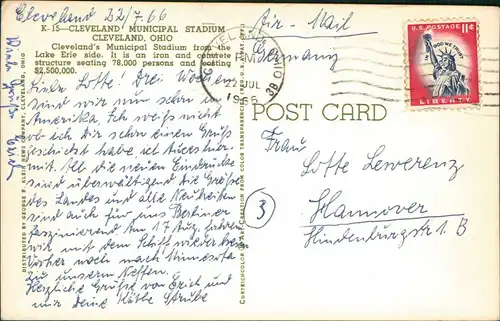 Cleveland 22/7.66
K-15—CLEVELAND MUNICIPAL STADIUM
CLEVELAND, OHIO
Cleveland's Municipal Stadium from the
Lake Erie side. It is an iron and concrete
structure seating 78,000 persons and costing
$2,500,000.
Liebe Lotte! Drei Wochen
sind wir nun schon in
Amerika. Ich weiß nicht
ob ich Dir schon einen Gruß
geschickt habe ich Auces hier-
mit. All die neuen Eindrücke
sind überwältigend die Größe
des Landes und alle Neuheiten
sind auch für uns Berliner
faszinierend Am 17 Aug. fahren
wir mit dem Schiff wieder heim
Vorher noch nach Minnesota
zu unserm Neffen.
Herzliche Grüße von Erich und
mir Deine Käthe Strübe
DISTRIBUTED BY GEORGE R. KLEIN NEWS COMPANY, CLEVELAND, OHIO
CURTEICHCOLOR ART CREATION FROM COLOR TRANSPARENCY
Air-Mail
Germany
CLEVELAND
22 JUL
1966
OHIO
U.S. POSTAGE 11¢
IN GOD WE TRUST
LIBERTY
POST CARD
Frau
Lotte Lewerenz
3
Hannover
Hindenburgstr. 1 B